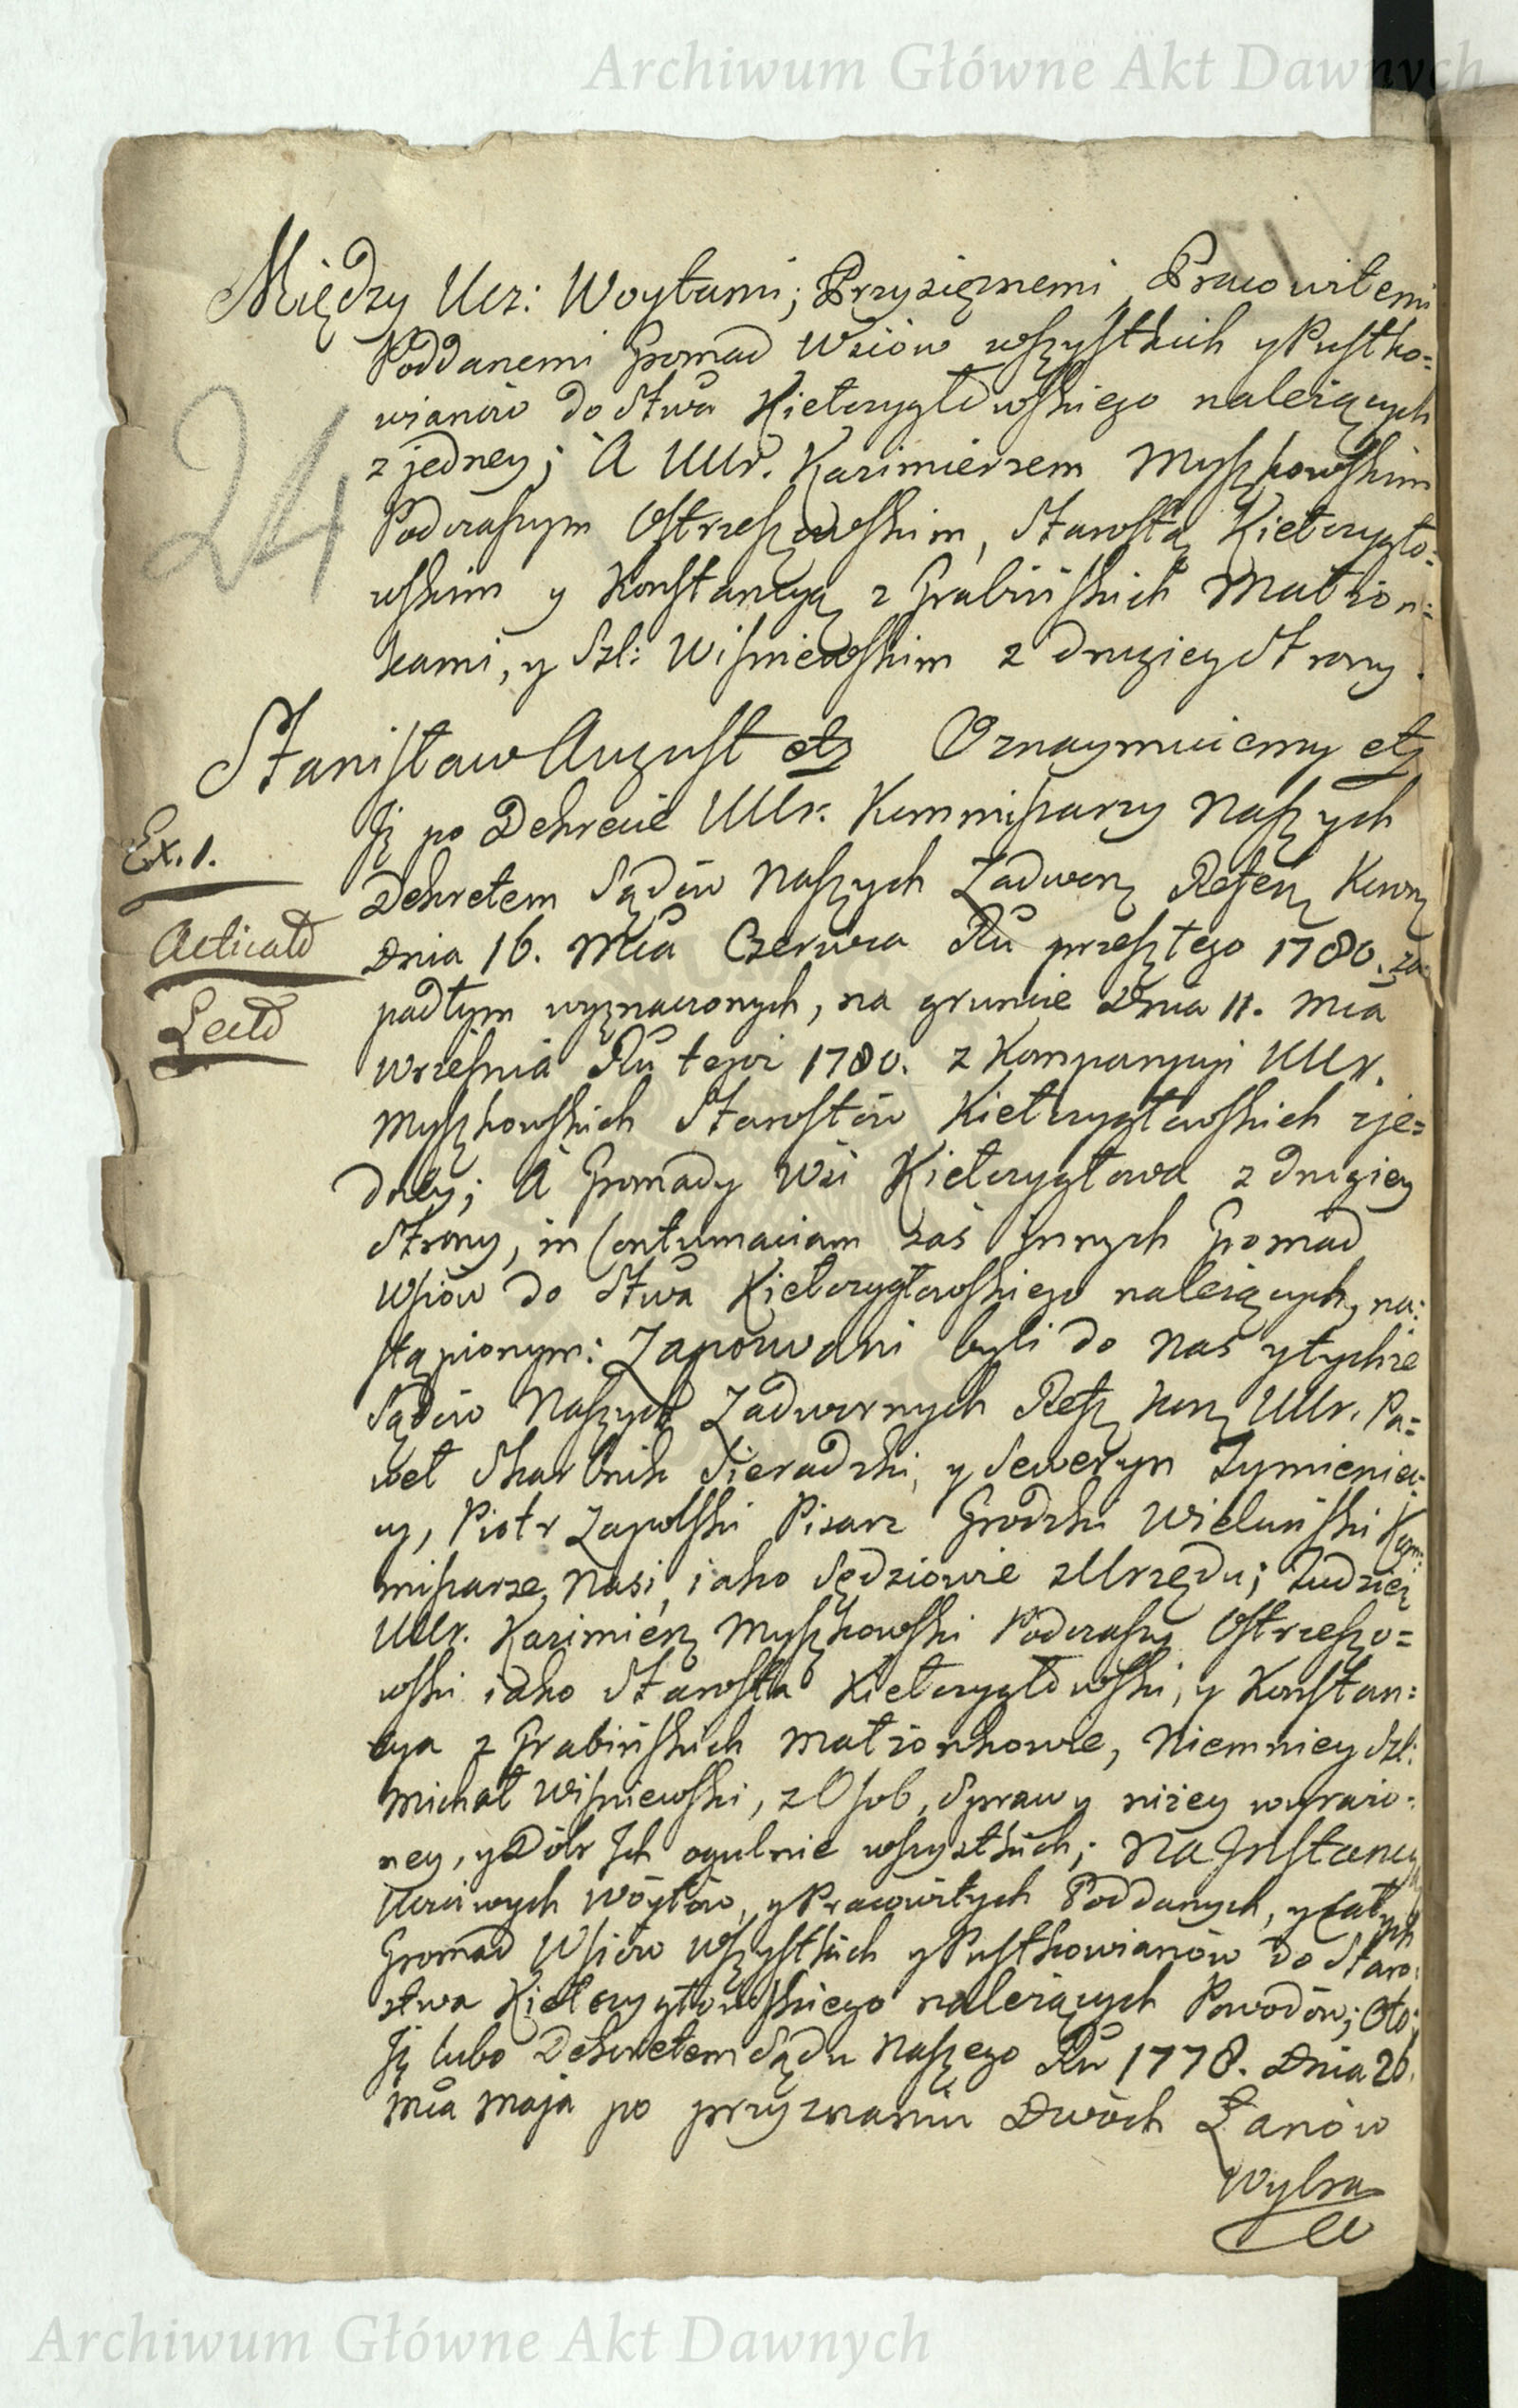 Archiwum Główne Akt Dawnych
Między Ucz: Woytami; Przysięznemi, Pracowitemi
Poddanemi Gromad Wsiów wszystkich y Pustko=
wianów do Stwa Kiełczygłowskiego należących
z jedney; A UUr. Kazimierzem Myszkowskim
Podczaszym Ostrzeszowskim, Starostą Kiełczygło=
wskim y Konstancyą z Grabińskich Małżon=
kami, y Szl: Wiśniewskim z drugiey Strony.
24
Stanisław August etz Oznaymuiemy etz
Iż po Dekrecie UUr: Kommissarzy Naszych
Ex. 1.
Dekretem Sądów Naszych Zadworn Refern Koronn
Acticatd
dnia 16. Mca Czerwca Ru przeszłego 1780. za=
padłym wyznaczonych, na gruncie dnia 11. Mca
Lectd
Września Ru tegoż 1780. z Komparycyi UUr.
Myszkowskich Starostów Kiełczygłowskich zje=
dney; A Gromady Wsi Kiełczygłowa z drugiey
Strony, in Contumaciam zaś innych Gromad
Wsiów do Stwa Kiełczygłowskiego należących, na=
stąpionym: Zapozwani byli do Nas y tychże
Sądów Naszych Zadwornych Refz Konz UUr. Pa=
weł Skarbnik Sieradzki, y Seweryn Zymieniew=
cy, Piotr Zapolski Pisarz Grodzki Wieluński Kom=
missarze, Nasi, iako Sędziowie z Urzędu; Tudzież
UUr. Kazimierz Myszkowski Podczaszy Ostrzeszo=
wski iako Starosta Kiełczygłowski, y Konstan=
cya z Grabińskich Małżonkowie, Niemniey Szl:
Michał Wiśniewski, z Osob, Sprawy niżey wyrażo=
ney, y Dóbr Ich ogulnie wszystkich; Na Instancyą
Uczciwych Wóytów, y Pracowitych Poddanych, y całych
Gromad Wsiów wszystkich y Pustkowianów do Staro=
stwa Kiełczygłowskiego należących Powodów; Oto:
Iż lubo Dekretem Sądu Naszego Ru 1778. dnia 26.
Mca Maja po przyznaniu dwóch Łanów
Wybra
Archiwum Główne Akt Dawnych